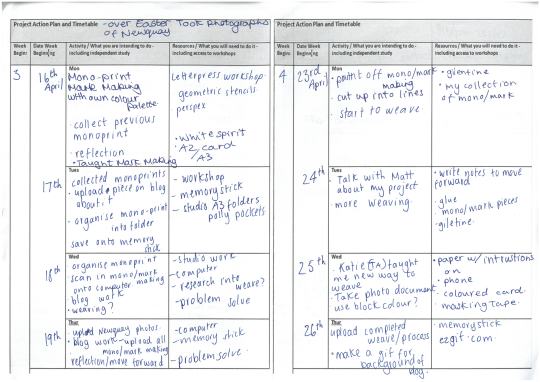 Project Action Plan and Timetable - over Easter Took photographs
of Newquay
Week Begin:
Date Week Begining
Activity / What you are intending to do - including independent study
Resources / What you will need to do it - including access to workshops
3
16th April
Mon
Mono-print
Mark Making
with own colour
palette
• collect previous
monoprint
• reflection
• Taught Mark Making
Letterpress workshop
geometric stencils
perspex
• White spirit
• A2/card
/A3
17th
Tues
collected monoprints
• upload piece on blog
about it
• organise mono-print
into folder
save onto memory
stick
- workshop
- memory stick
- studio A3 folders
polly pockets
18th
Wed
organise monoprint
• scan in mono/mark
onto computer making
blog work
• wearing?
- studio work
- computer
- research into
weave?
- problem solve
19th
Thur
• upload Newquay photos.
• blog work - upload all
mono/mark making
reflection/move forward
- computer
- memory stick
- problem solve.
Project Action Plan and Timetable
Week Begin:
Date Week Begining
Activity / What you are intending to do - including independent study
Resources / What you will need to do it - including access to workshops
4
23rd April
Mon
• point off mono/mark
making
• cut up into lines
• start to weave
• glentine
• my collection
of mono/mark
24th
Tues
• Talk with Matt
about my project
• more weaving
• write notes to move
forward
• glue
• mono/mark pieces
• giletine.
25th
Wed
• Katie (TA) taught
me new way to
weave
• Take photo document
use block colour?
• paper w/ intrustions
on
• phone
• coloured card
• masking tape.
26th
Thur
upload completed
weave/process
• make a gif for
background of
blog.
• memory stick
ezgif.com